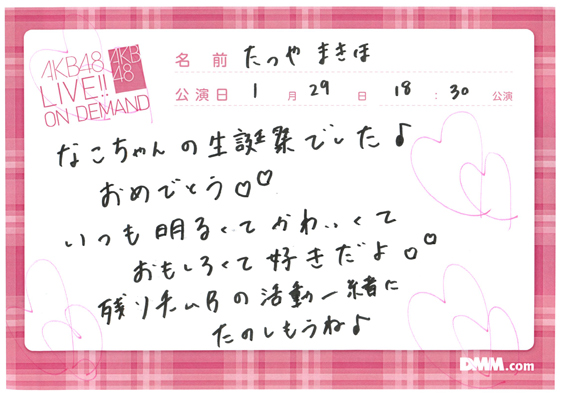 AKB48
LIVE!!
ON DEMAND
AKB
48
名前 たつや まきほ
公演日 1月 29日 18:30 公演
なこちゃんの生誕祭でした♪
おめでとう♡♡
いつも明るくてかわいくて
おもしろくて好きだよ♡♡
残りチームBの活動一緒に
たのしもうね♪
DMM.com